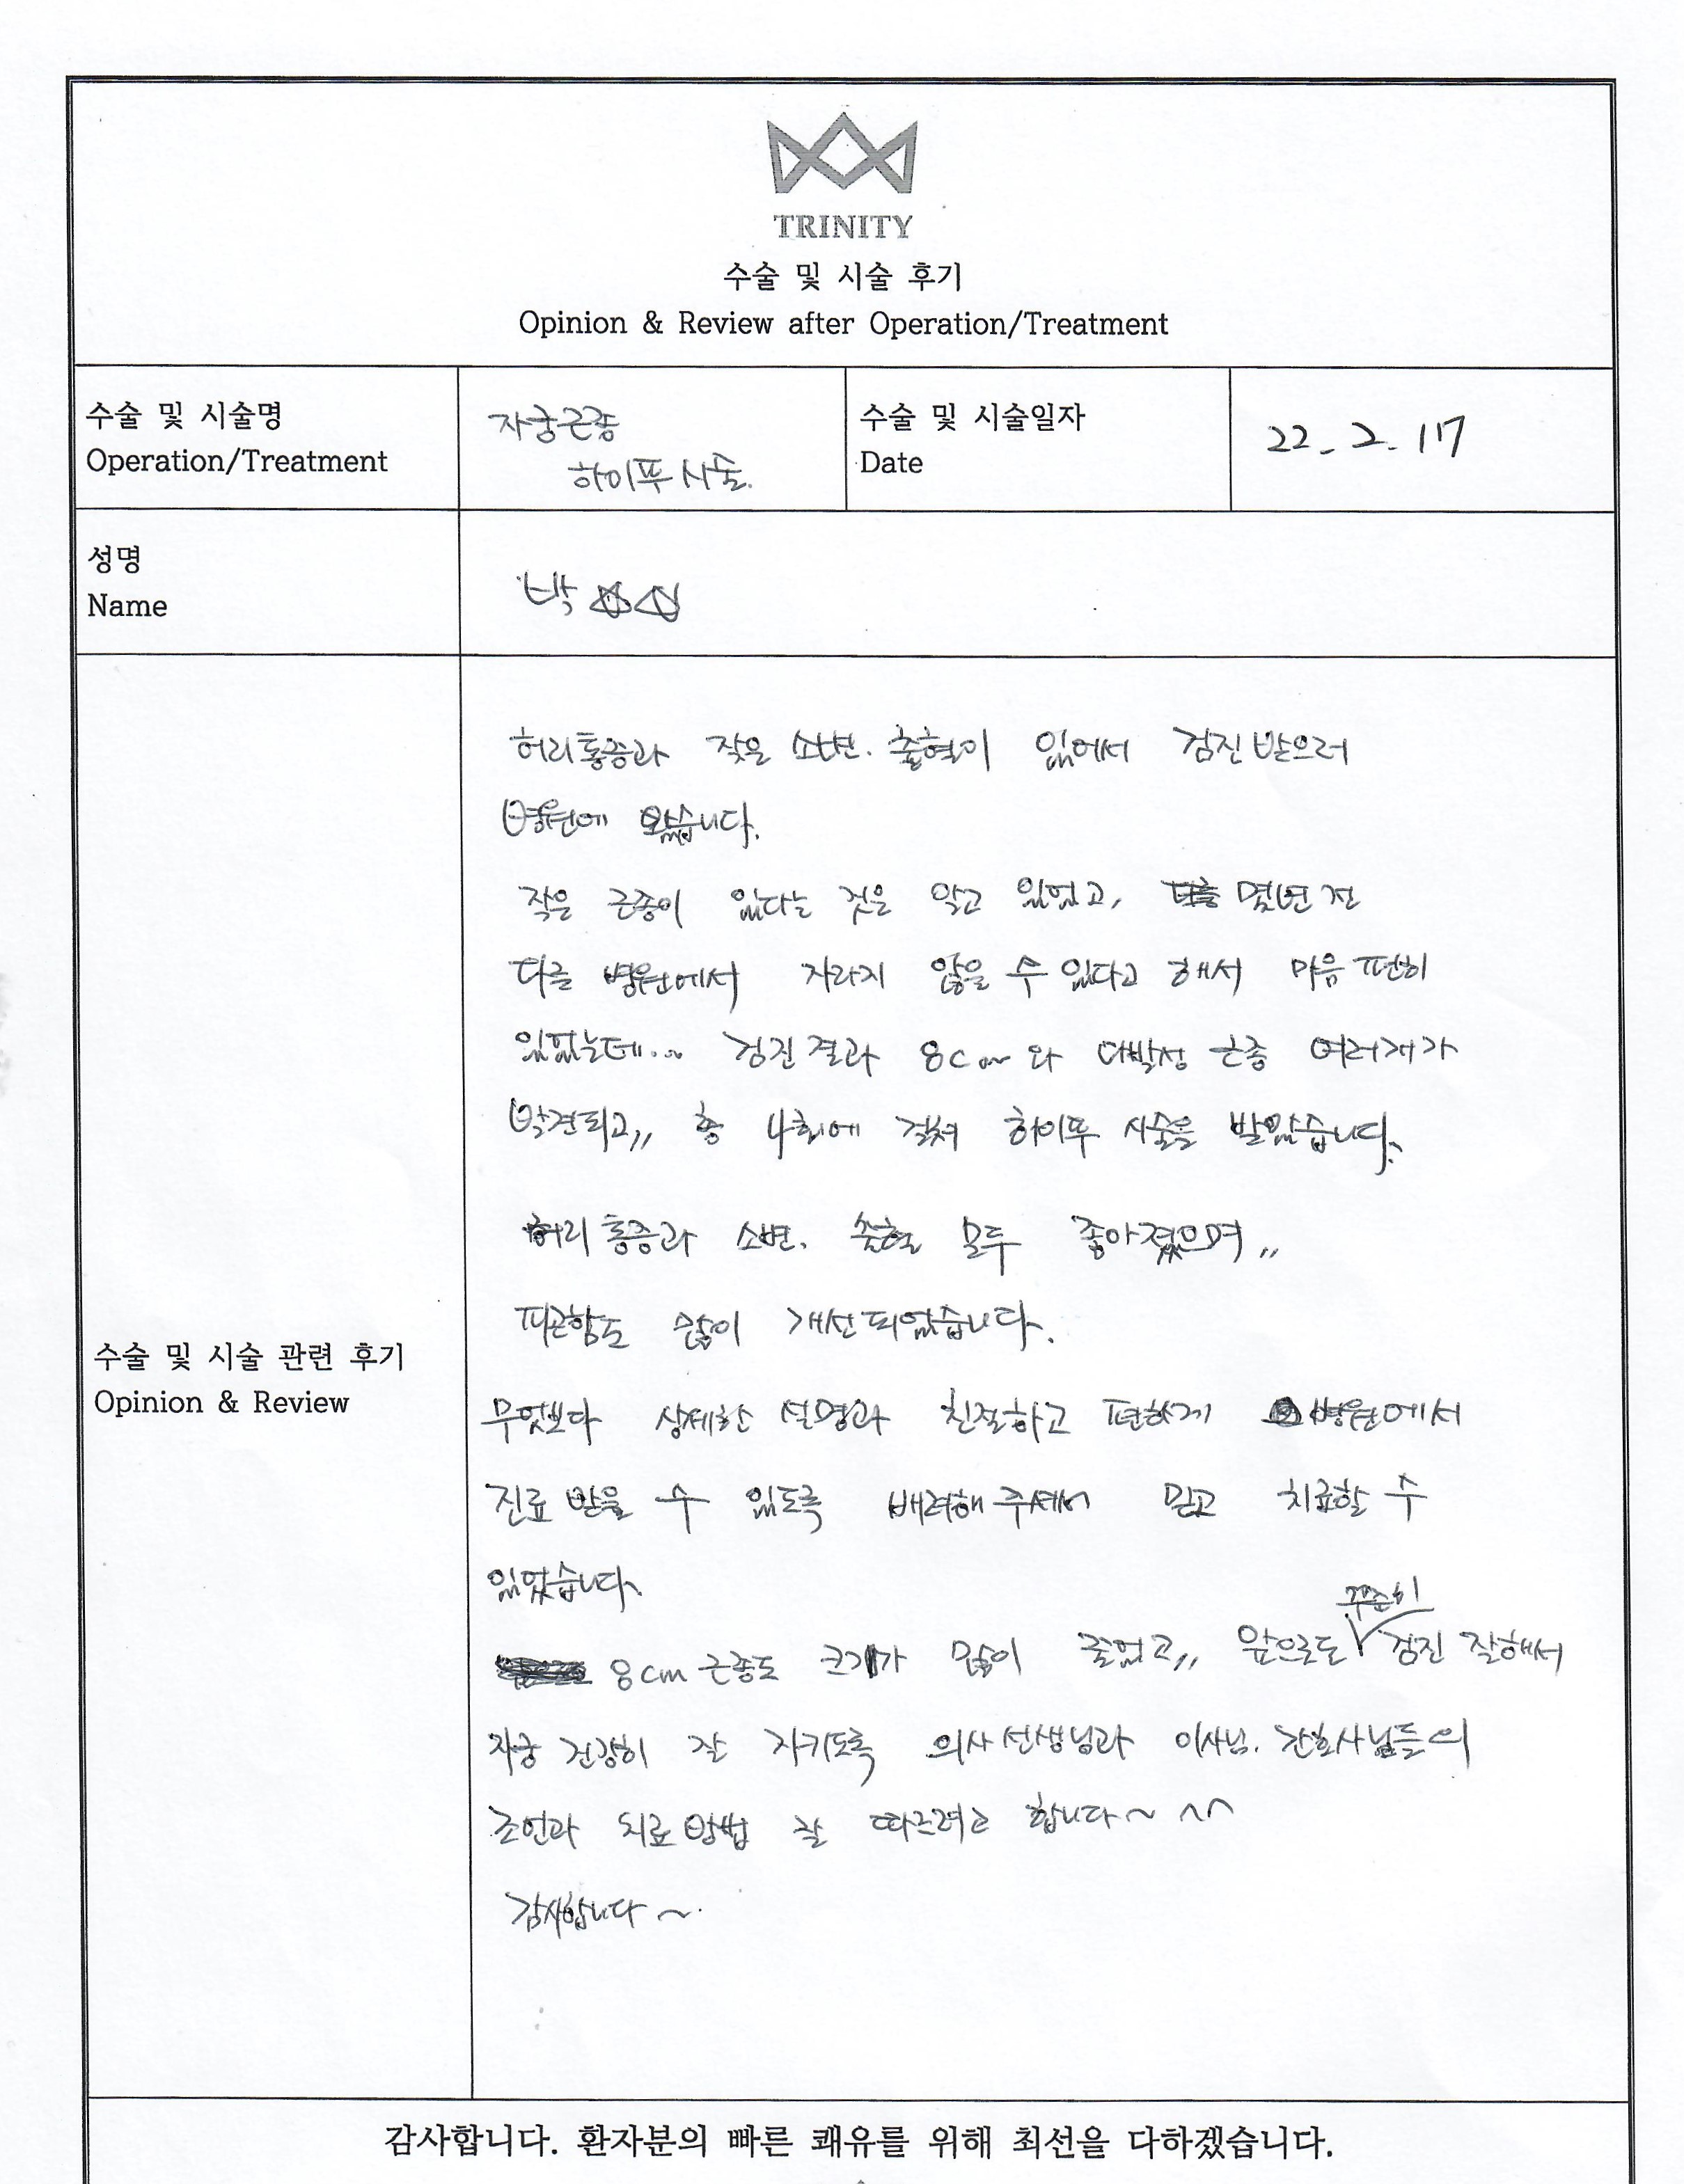 TRINITY
수술 및 시술 후기
Opinion & Review after Operation/Treatment
수술 및 시술명
Operation/Treatment
자궁근종
하이푸 시술.
수술 및 시술일자
Date
22. 2. 17
성명
Name
박
수술 및 시술 관련 후기
Opinion & Review
허리통증과 잦은 소변. 출혈이 있어서 검진 받으러
병원에 왔습니다.
작은 근종이 있다는 것은 알고 있었고, 몇년 전
다른 병원에서 자라지 않을 수 있다고 해서 마음 편히
있었는데... 검진 결과 8cm와 다발성 근종 여러개가
발견되고,, 총 4회에 걸쳐 하이푸 시술을 받았습니다.
허리통증과 소변. 출혈 모두 좋아졌으며,,
피곤함도 많이 개선되었습니다.
무엇보다 상세한 설명과 친절하고 편하게 병원에서
진료 받을 수 있도록 배려해 주셔서 믿고 치료할 수
있었습니다.
8cm 근종도 크기가 많이 줄었고,, 앞으로도 꾸준히 검진 잘해서
자궁 건강히 잘 지키도록 의사선생님과 이사님. 간호사님들의
조언과 치료방법 잘 따르려고 합니다~ ^^
감사합니다~.
감사합니다. 환자분의 빠른 쾌유를 위해 최선을 다하겠습니다.